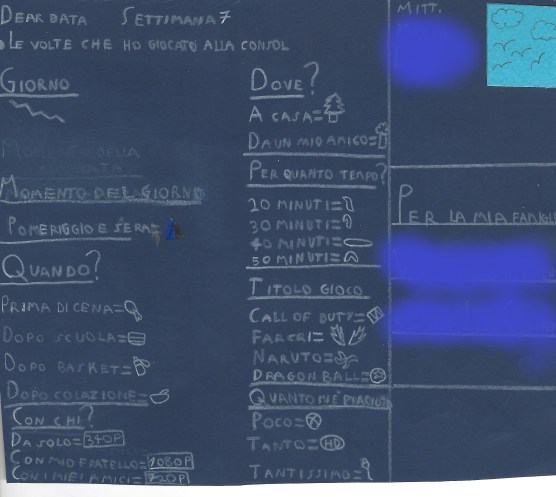 DEAR DATA SETTIMANA 7
LE VOLTE CHE HO GIOCATO ALLA CONSOL
GIORNO
MOMENTO DEL GIORNO
POMERIGGIO E SERA=
QUANDO?
PRIMA DI CENA=
DOPO SCUOLA=
DOPO BASKET=
DOPO COLAZIONE=
CON CHI?
DA SOLO=340P
CON MIO FRATELLO=1080P
CON I MIEI AMICI=720P
DOVE?
A CASA=
DA UN MIO AMICO=
PER QUANTO TEMPO?
20 MINUTI=
30 MINUTI=
40 MINUTI=
50 MINUTI=
TITOLO GIOCO
CALL OF DUTY=
FARCRI=
NARUTO=
DRAGON BALL=
QUANTO MI È PIACIUTO
POCO=
TANTO=HD
TANTISSIMO=
MITT.
PER LA MIA FAMIGL